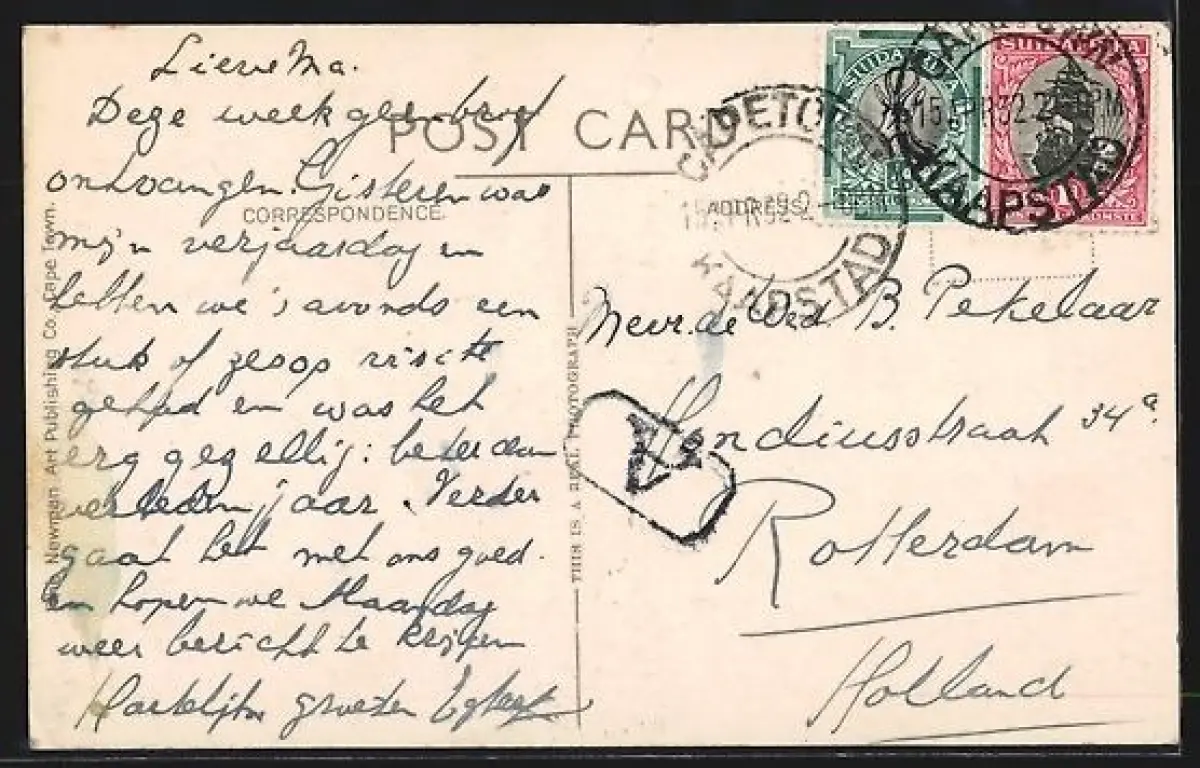 Lieve Ma.
Deze week geen brief
ontvangen. Gisteren was
mijn verjaardag en
hebben we 's avonds een
stuk of zes op visite
gehad en was het
erg gezellig: beter dan
verleden jaar. Verder
gaat het met ons goed.
en hopen we Maandag
weer bericht te krijgen
Hartelijke groeten
POST CARD
CORRESPONDENCE.
ADDRESS
Newman Art Publishing Co., Cape Town.
THIS IS A REAL PHOTOGRAPH
SUIDAFRIKA
SUIDAFRIKA
CAPETOWN
15 APR 32
KAAPSTAD
15 APR 32
KAAPSTAD
Mevr. de Wed. B. Pekelaar
Hondiusstraat 34a.
Rotterdam
Holland